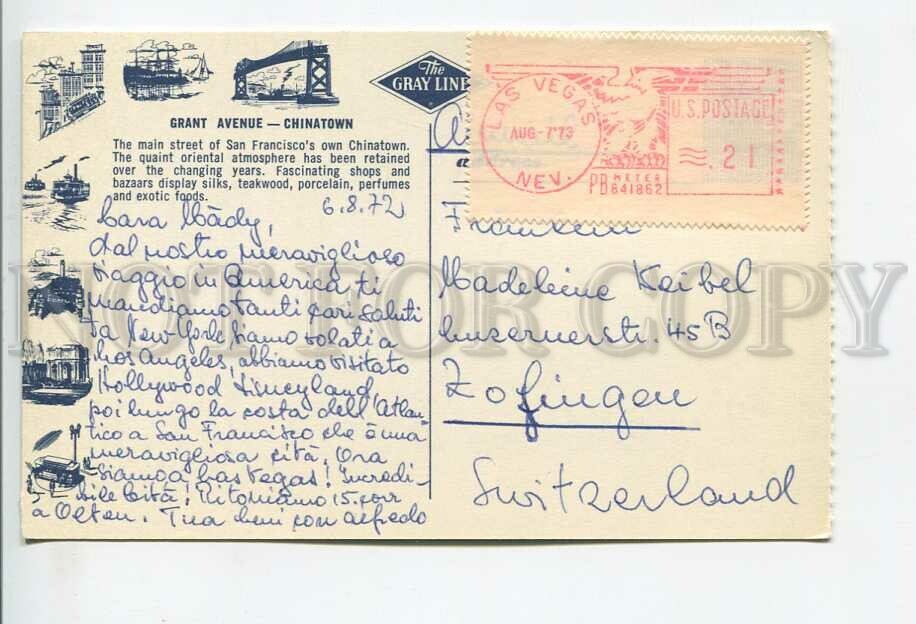 The
GRAY LINE
GRANT AVENUE — CHINATOWN
The main street of San Francisco's own Chinatown.
The quaint oriental atmosphere has been retained
over the changing years. Fascinating shops and
bazaars display silks, teakwood, porcelain, perfumes
and exotic foods.
6.8.72
Cara Mädy,
dal nostro meraviglioso
viaggio in America ti
mandiamo tanti cari saluti
Da New-York siamo volati a
Los Angeles, abbiamo visitato
Hollywood Disneyland,
poi lungo la costa dell'Atlan-
tico a San Francisco che è una
meravigliosa città! Ora
siamo a Las Vegas! Incredi-
bile Città! Ritorniamo 15.
a Olten. Tua con Alfredo
LAS VEGAS
AUG-7'73
NEV.
U.S. POSTAGE
.21
PB METER
841862
Fräulein
Madeleine Keibel
Luzernerstr. 45B
Zofingen
Switzerland
NOT FOR COPY